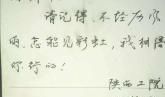 请记得，不经历风
雨，怎能见彩虹，我相信
你行的！
陕西工院